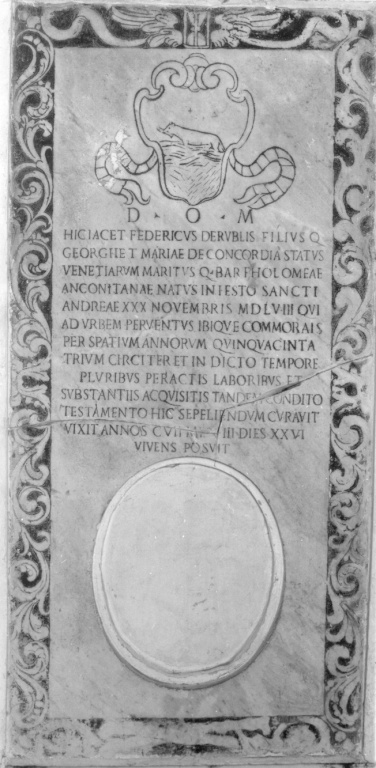 D · O · M
HIC IACET FEDERICVS DE RVBLIS FILIVS Q
GEORGII ET MARIAE DE CONCORDIA STATVS
VENETIARVM MARITVS Q· BARTHOLOMEAE
ANCONITANAE NATVS IN FESTO SANCTI
ANDREAE XXX NOVEMBRIS MDLVIII QVI
AD VRBEM PERVENTVS IBIQVE COMMORATS
PER SPATIVM ANNORVM QVINQVAGINTA
TRIVM CIRCITER ET IN DICTO TEMPORE
PLVRIBVS PERACTIS LABORIBVS ET
SVBSTANTIIS ACQVISITIS TANDEM CONDITO
TESTAMENTO HIC SEPELIENDVM CVRAVIT
VIXIT ANNOS III DIES XXVI
VIVENS POSVIT